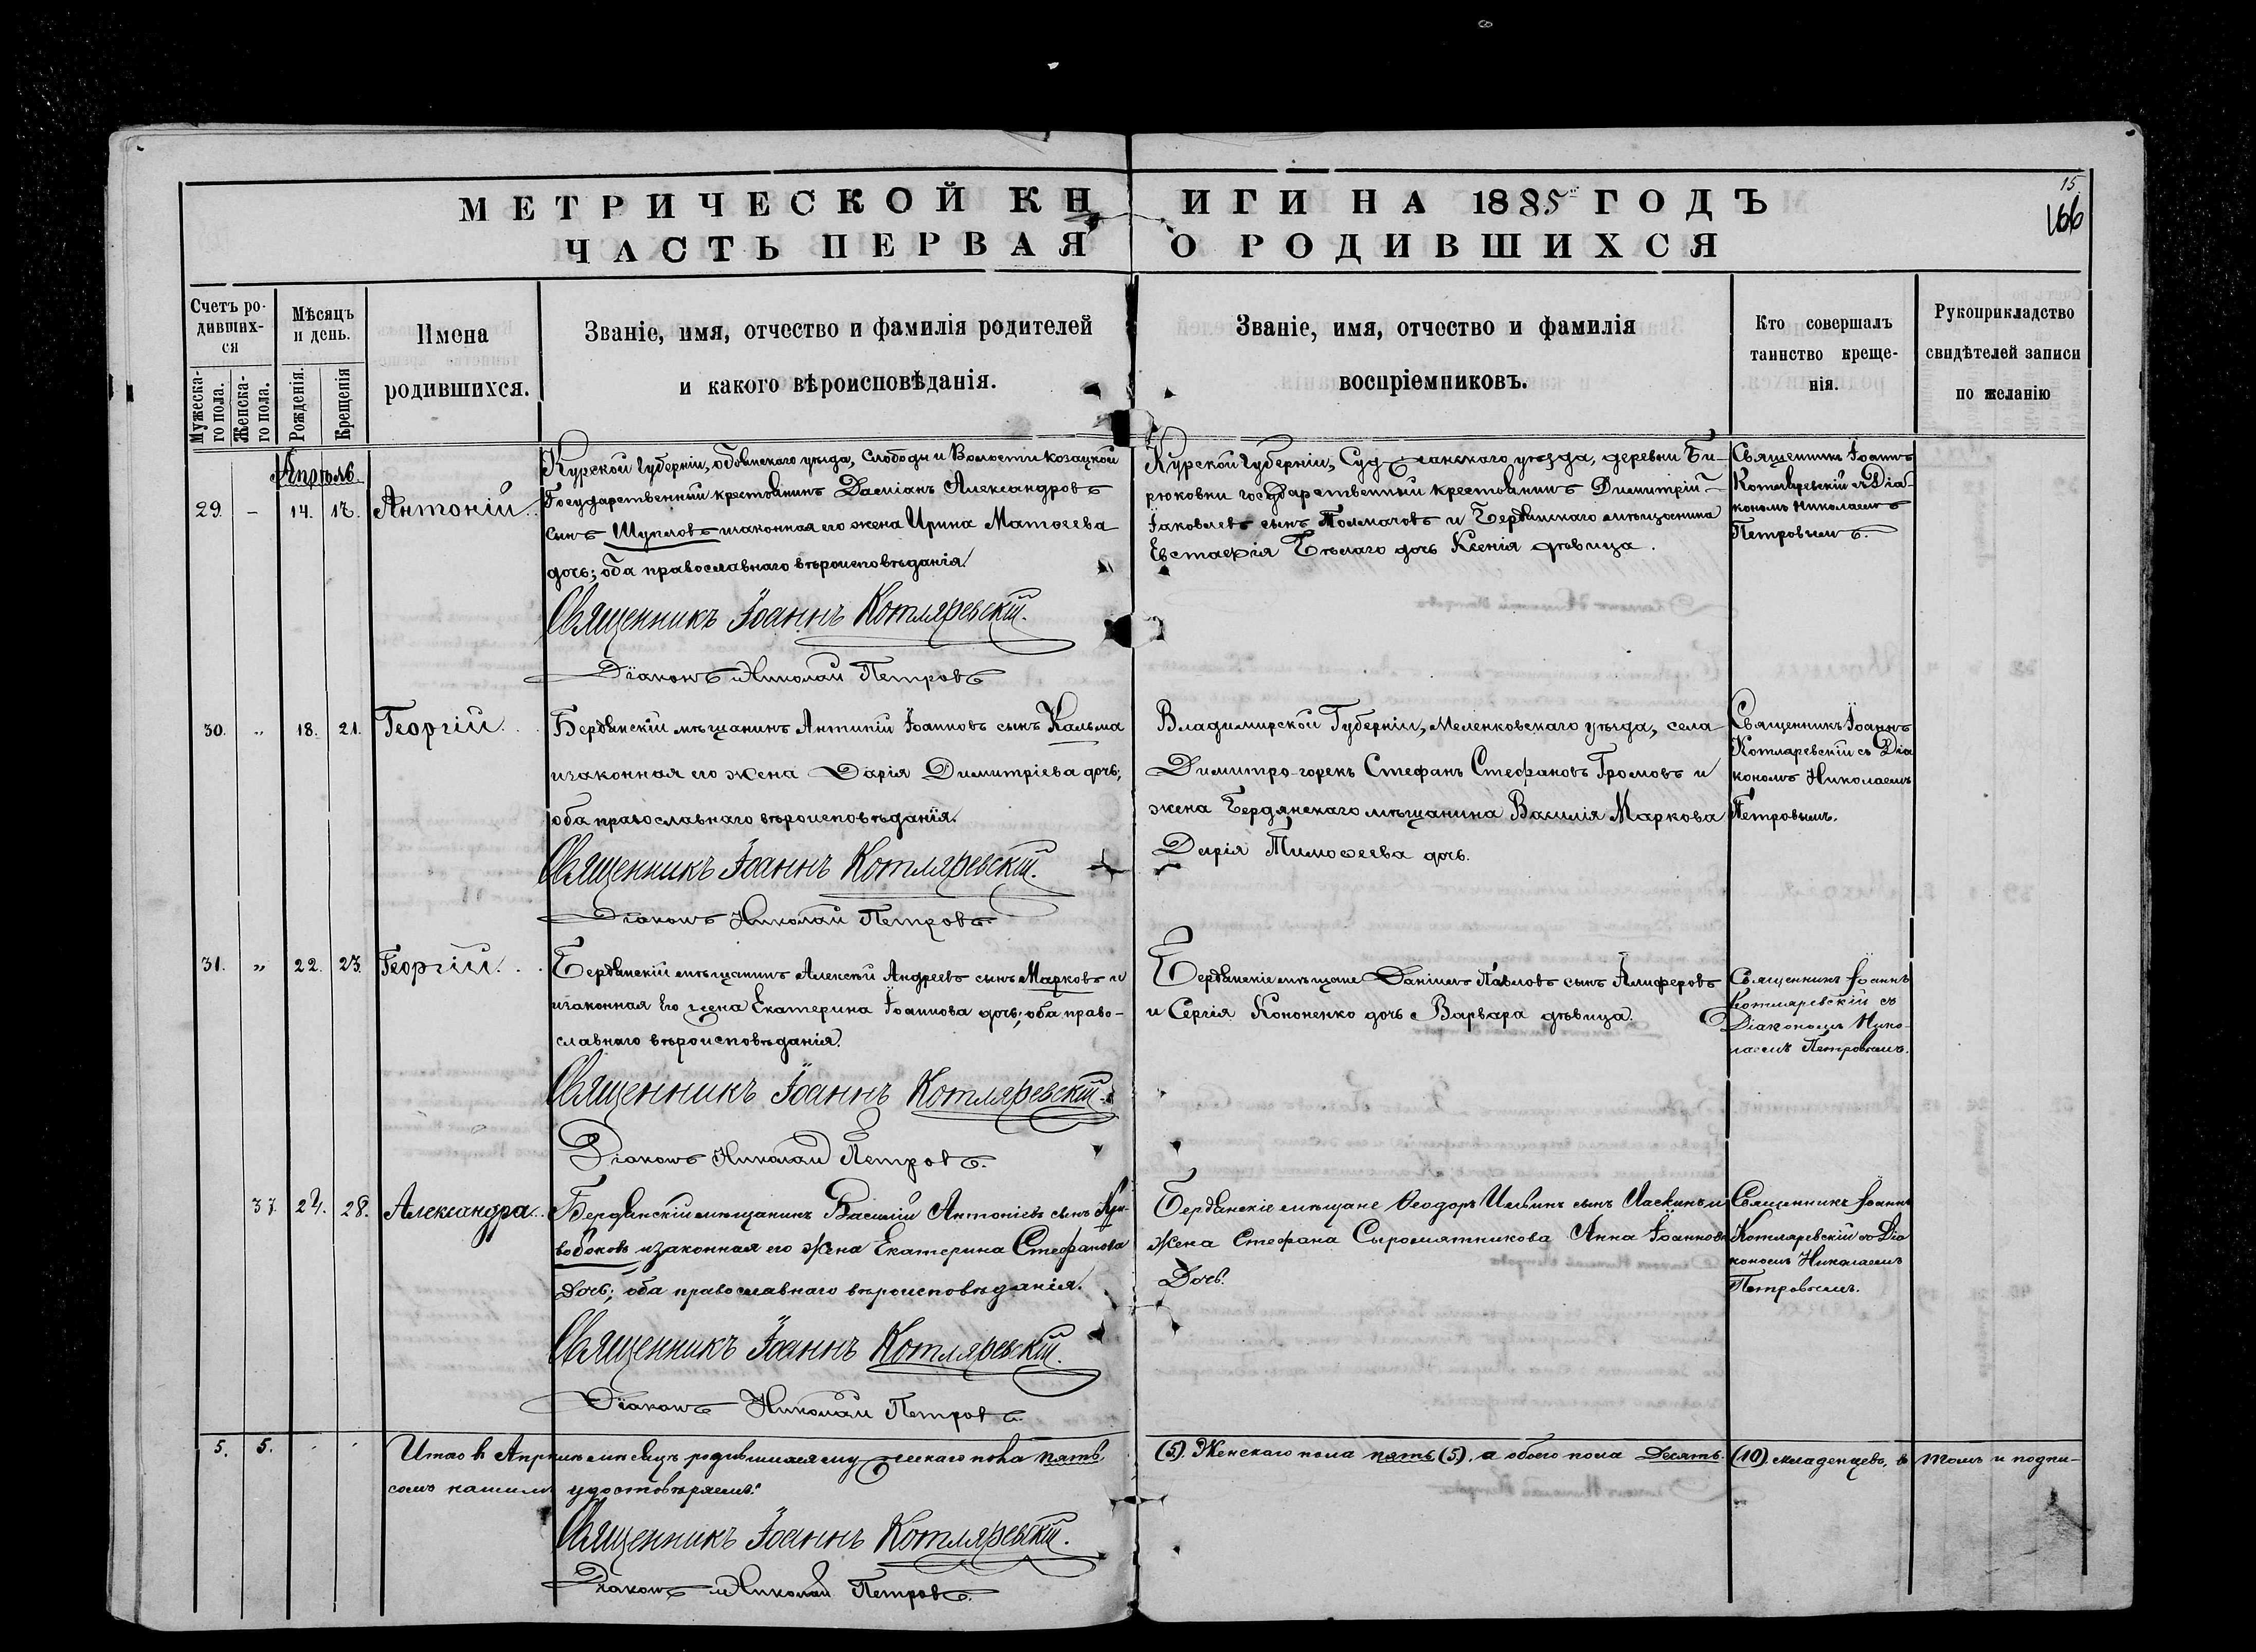 15.
166
МЕТРИЧЕСКОЙ КНИГИ НА 1885 ГОДЪ
ЧАСТЬ ПЕРВАЯ О РОДИВШИХСЯ
Счетъ ро-
дивших-
ся
Мужеска-
го пола.
Женска-
го пола.
Мѣсяцъ
и день.
Рожденія.
Крещенія
Имена
родившихся.
Званіе, имя, отчество и фамилія родителей
и какого вѣроисповѣданія.
Званіе, имя, отчество и фамилія
воспріемниковъ.
Кто совершалъ
таинство креще-
нія.
Рукоприкладство
свидѣтелей записи
по желанію
Апрѣль
29. – 14. Антоній
Курской Губерніи, обоянскаго уѣзда, Слободы и Волости Козацкой
Государственный крестьянинъ Даміанъ Александровъ
сынъ и законная его жена Ирина Матѳеева
дочь; оба православнаго вѣроисповѣданія.
Священникъ Іоаннъ Котляревскій.
Діаконъ Николай Петровъ
Курской Губерніи, Суджанскаго уѣзда, деревни Би-
рюковки государственный крестьянинъ Димитрій
Іаковлевъ сынъ Толмачовъ и Бердянскаго мѣщанина
Евстафія Бѣлаго дочь Ксенія дѣвица.
Священникъ Іоаннъ
Котляревскій с Діа-
кономъ Николаемъ
Петровымъ.
30. " 18. 21. Георгій.
Бердянскій мѣщанинъ Антипій Іоанновъ сынъ Кальма
и законная его жена Дарія Димитріева дочь;
оба православнаго вѣроисповѣданія.
Священникъ Іоаннъ Котляревскій.
Діаконъ Николай Петровъ.
Владимирской Губерніи, Меленковскаго уѣзда, села
Димитро-горекъ Стефанъ Стефановъ Громовъ и
жена Бердянскаго мѣщанина Василія Маркова
Дарія Тимоѳеева дочь.
Священникъ Іоаннъ
Котляревскій съ Діа
кономъ Николаемъ
Петровымъ.
31. " 22. 23. Георгій.
Бердянскій мѣщанинъ Алексѣй Андреевъ сынъ Марковъ и
законная Его жена Екатерина Іоаннова дочь; оба право-
славнаго вѣроисповѣданія.
Священникъ Іоаннъ Котляревскій.
Діаконъ Николай Петровъ.
Бердянскіе мѣщане Даніилъ Павловъ сынъ Алиферовъ
и Сергія Кононенко дочь Варвара дѣвица.
Священникъ Іоаннъ
Котляревскій съ
Діакономъ Нико-
лаемъ Петровымъ.
37. 24. 28. Александра.
Бердянскій мѣщанинъ Василій Антоніевъ сынъ Кри-
вобоковъ и законная его жена Екатерина Стефанова
Дочь; оба православнаго вѣроисповѣданія.
Священникъ Іоаннъ Котляревскій.
Діаконъ Николай Петровъ.
Бердянскіе мѣщане Ѳеодоръ Ильинъ сынъ и
Жена Стефана Сыромятникова Анна Іоаннова
Дочь.
Священникъ Іоаннъ
Котляревскій со Діа
кономъ Николаемъ
Петровымъ.
5. 5.
Итого въ Апрѣлѣ мѣсяцѣ родившихся мужескаго пола пять (5). Женскаго пола пять (5), а обоего пола Десять (10) младенцевъ, в томъ и подпи-
сомъ нашимъ удостовѣряемъ:
Священникъ Іоаннъ Котляревскій.
Діаконъ Николай Петровъ.